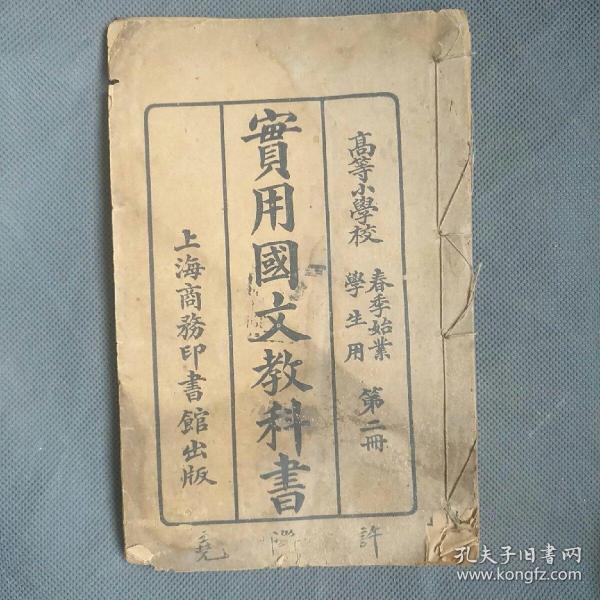 高等小學校 春季始業 學生用 第二冊
實用國文教科書
上海商務印書館出版
許
堯
孔夫子旧书网
www.kongfz.com